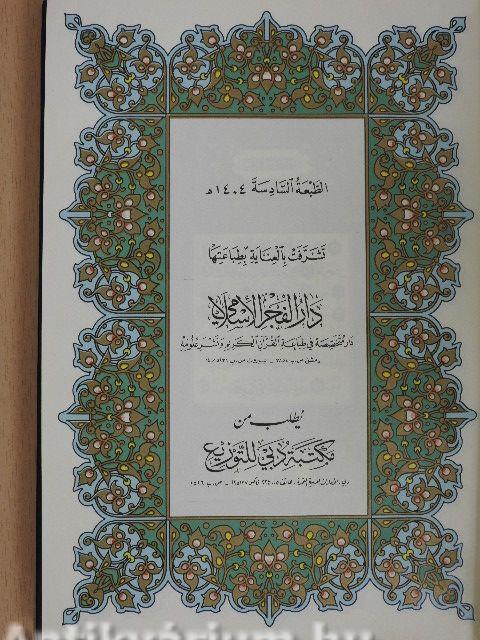 الطَّبْعَةُ السَّادِسَةُ ١٤٠٤ هـ
تَشَرَّفَتْ بِالْعِنَايَةِ بِطِبَاعَتِهَا
دَارُ الفَجْرِ الإِسْلَامِي
دار متخصصة في طباعة القرآن الكريم ونشر علومه
دمشق ص.ب - بيروت ص.ب
يُطلب من
مكتبة دبي للتوزيع
دبي
Antikvárium.hu